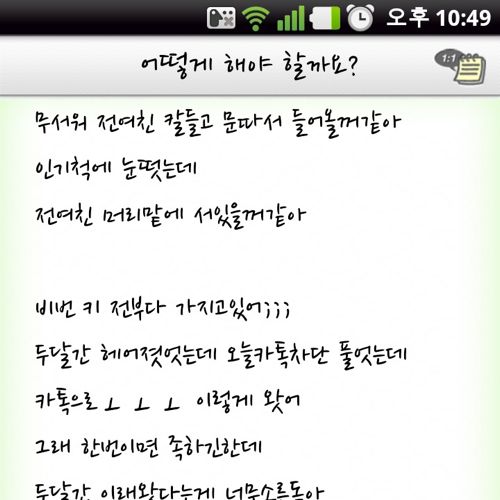 오후 10:49
어떻게 해야 할까요?
1:1
무서워 전여친 칼들고 문따서 들어올꺼같아
인기척에 눈떳는데
전여친 머리맡에 서있을꺼같아
비번 키 전부다 가지고있어;;;
두달간 헤어졋엇는데 오늘카톡차단 풀엇는데
카톡으로 ㅗ ㅗ ㅗ 이렇게 왓어
그래 한번이면 족하긴한데
두달간 이래왔다는게 너무소르돋아